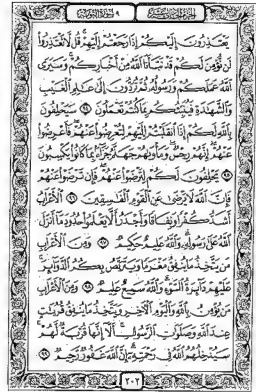 الجزء الحادى عشر
٩ سورة التوبة
يَعْتَذِرُونَ إِلَيْكُمْ إِذَا رَجَعْتُمْ إِلَيْهِمْ قُل لَّا تَعْتَذِرُوا
لَن نُّؤْمِنَ لَكُمْ قَدْ نَبَّأَنَا اللَّهُ مِنْ أَخْبَارِكُمْ وَسَيَرَى
اللَّهُ عَمَلَكُمْ وَرَسُولُهُ ثُمَّ تُرَدُّونَ إِلَى عَالِمِ الْغَيْبِ
وَالشَّهَادَةِ فَيُنَبِّئُكُم بِمَا كُنتُمْ تَعْمَلُونَ ٩٤ سَيَحْلِفُونَ
بِاللَّهِ لَكُمْ إِذَا انقَلَبْتُمْ إِلَيْهِمْ لِتُعْرِضُوا عَنْهُمْ فَأَعْرِضُوا
عَنْهُمْ إِنَّهُمْ رِجْسٌ وَمَأْوَاهُمْ جَهَنَّمُ جَزَاءً بِمَا كَانُوا يَكْسِبُونَ
٩٥ يَحْلِفُونَ لَكُمْ لِتَرْضَوْا عَنْهُمْ فَإِن تَرْضَوْا عَنْهُمْ
فَإِنَّ اللَّهَ لَا يَرْضَى عَنِ الْقَوْمِ الْفَاسِقِينَ ٩٦ الْأَعْرَابُ
أَشَدُّ كُفْرًا وَنِفَاقًا وَأَجْدَرُ أَلَّا يَعْلَمُوا حُدُودَ مَا أَنزَلَ
اللَّهُ عَلَى رَسُولِهِ وَاللَّهُ عَلِيمٌ حَكِيمٌ ٩٧ وَمِنَ الْأَعْرَابِ
مَن يَتَّخِذُ مَا يُنفِقُ مَغْرَمًا وَيَتَرَبَّصُ بِكُمُ الدَّوَائِرَ
عَلَيْهِمْ دَائِرَةُ السَّوْءِ وَاللَّهُ سَمِيعٌ عَلِيمٌ ٩٨ وَمِنَ الْأَعْرَابِ
مَن يُؤْمِنُ بِاللَّهِ وَالْيَوْمِ الْآخِرِ وَيَتَّخِذُ مَا يُنفِقُ قُرُبَاتٍ
عِندَ اللَّهِ وَصَلَوَاتِ الرَّسُولِ أَلَا إِنَّهَا قُرْبَةٌ لَّهُمْ
سَيُدْخِلُهُمُ اللَّهُ فِي رَحْمَتِهِ إِنَّ اللَّهَ غَفُورٌ رَّحِيمٌ ٩٩
٢٠٢